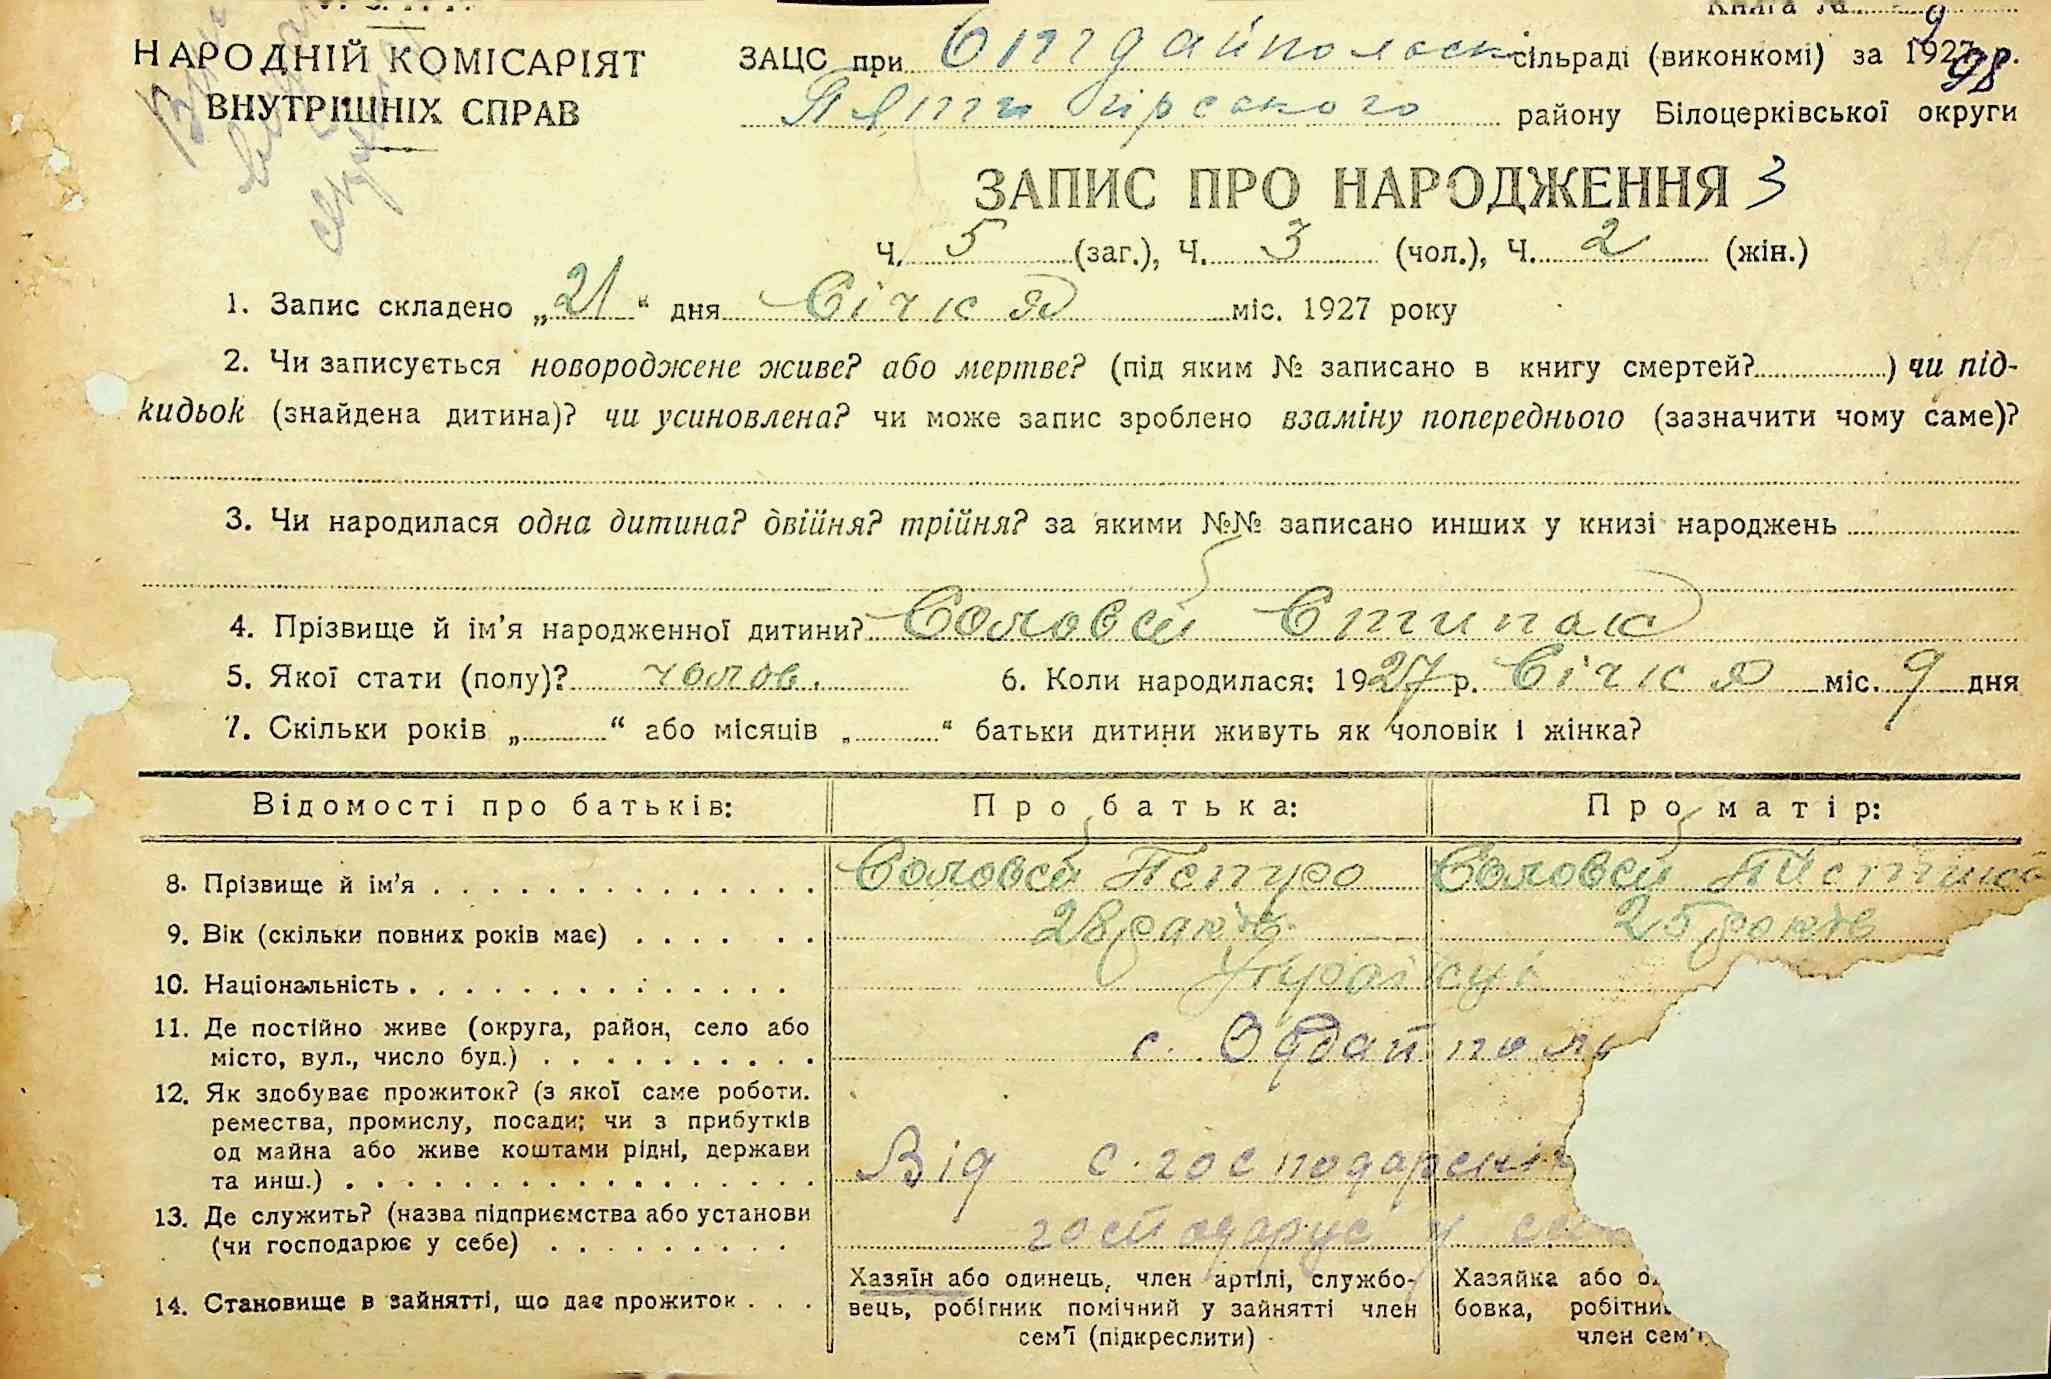 Книга №
НАРОДНІЙ КОМІСАРІЯТ
ВНУТРІШНІХ СПРАВ
ЗАЦС при сільраді (виконкомі) за 1927 р.
9
98
Пятигірського району Білоцерківської округи
ЗАПИС ПРО НАРОДЖЕННЯ 3
Ч. 5 (заг.), Ч. 3 (чол.), Ч. 2 (жін.)
1. Запис складено „21“ дня Січня міс. 1927 року
2. Чи записується новороджене живе? або мертве? (під яким № записано в книгу смертей?) чи під-
кидьок (знайдена дитина)? чи усиновлена? чи може запис зроблено взаміну попереднього (зазначити чому саме)?
3. Чи народилася одна дитина? двійня? трійня? за якими №№ записано инших у книзі народжень
4. Прізвище й ім’я народженної дитини? Соловей Степан
5. Якої стати (полу)? чолов. 6. Коли народилася: 1927 р. Січня міс. 9 дня
7. Скільки років „ “ або місяців „ “ батьки дитини живуть як чоловік і жінка?
Відомості про батьків: Про батька: Про матір:
8. Прізвище й ім’я Соловей Петро Соловей
9. Вік (скільки повних років має) 28 років 25 років
10. Національність Українці
11. Де постійно живе (округа, район, село або
місто, вул., число буд.) с.
12. Як здобуває прожиток? (з якої саме роботи.
ремества, промислу, посади; чи з прибутків
од майна або живе коштами рідні, держави
та инш.) Від с. господарсн
13. Де служить? (назва підприємства або установи
(чи господарює у себе) господарує у се
14. Становище в зайнятті, що дає прожиток
Хазяїн або одинець, член артілі, службо-
вець, робітник помічний у зайнятті член
сем’ї (підкреслити)
Хазяйка або о
бовка, робітни
член сем’ї